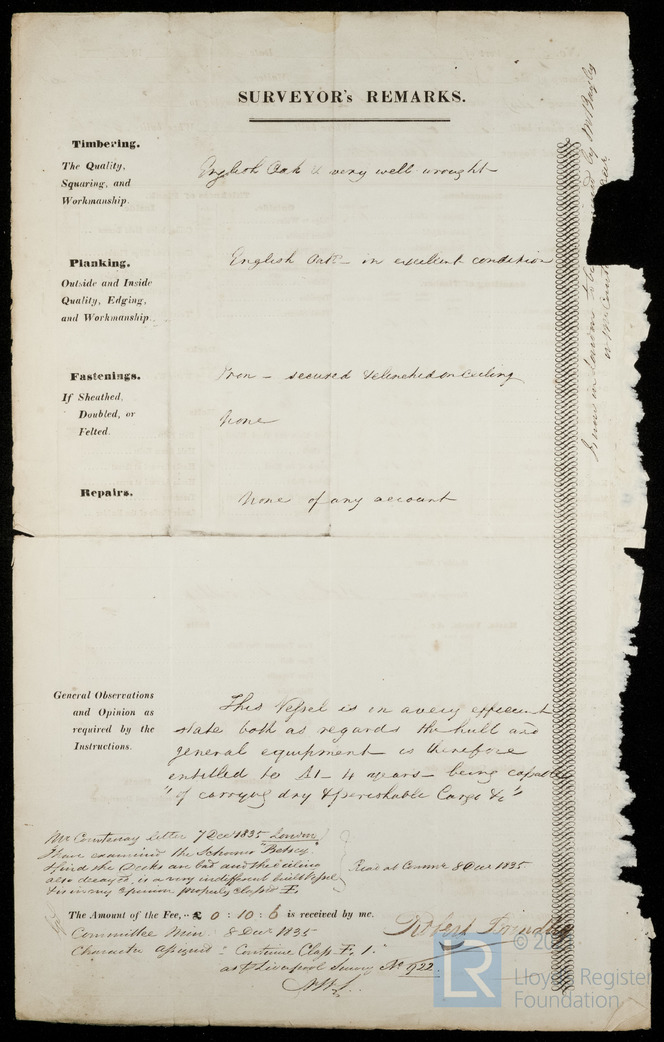 SURVEYOR's REMARKS.
Timbering.
The Quality,
Squaring, and
Workmanship.
English Oak & very well wrought
Planking.
Outside and Inside
Quality, Edging,
and Workmanship.
English Oak - in excellent condition
Fastenings.
If Sheathed,
Doubled, or
Felted.
Iron - secured & clenched on Ceiling
None
Repairs.
None of any account
General Observations
and Opinion as
required by the
Instructions.
This Vessel is in a very efficient
state both as regards the hull and
general equipment is therefore
entitled to A1 - 4 years - being capable
"of carrying dry & perishable Cargo &c"
Mr Courtenay letter 7 Dec 1835 London
I have examined the Schooner "Betsey"
& find the Decks are bad and the Ceiling
also decayed, is a very indifferent built vessel
& is in my opinion properly classed E.
Read at Commee 8 Dec 1835
The Amount of the Fee, £ 0 : 10 : 6 is received by me.
Robert
Committee Min: 8 Dec 1835
Character assigned : Continue Class E, 1.
as Liverpool Survey No 1722.
to be by Mr Bayley
or Mr
© 20
LR
Lloyd's Register
Foundation